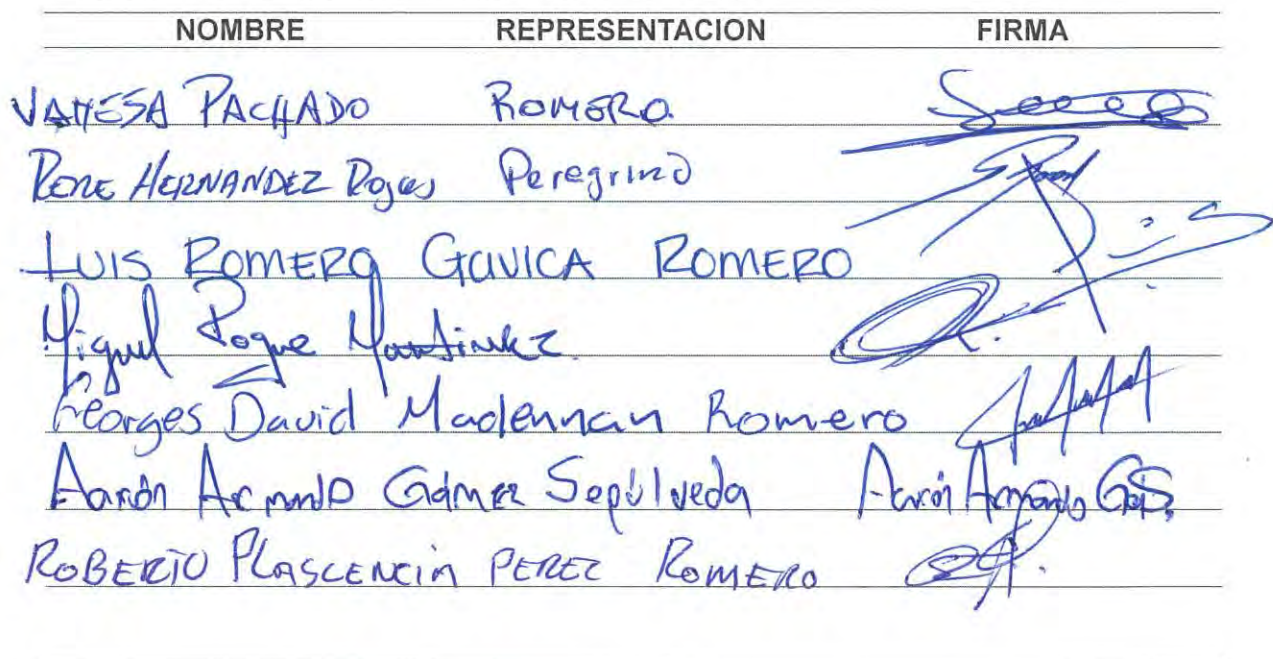 NOMBRE REPRESENTACION FIRMA
VANESA PACHADO ROMERO
RENE HERNANDEZ Rojas Peregrino
LUIS ROMERO GAVICA ROMERO
Miguel Roque Martinez
Georges David Maclennan Romero
Aarón Armando Gámez Sepúlveda Aarón Armando G.S.
ROBERTO PLASCENCIA PEREZ ROMERO